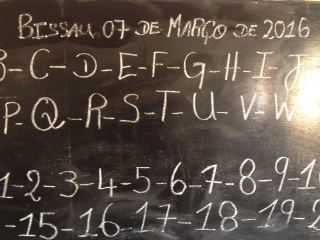 BISSAU, 07 DE MARÇO DE 2016
B-C-D-E-F-G-H-I-J
P-Q-R-S-T-U-V-W
1-2-3-4-5-6-7-8-9-10
-15-16-17-18-19-2